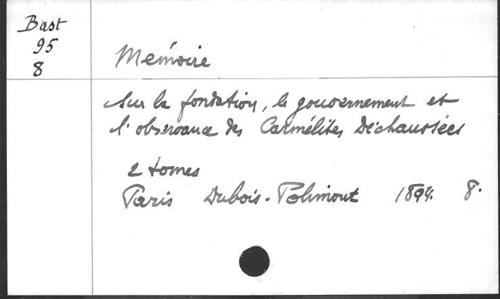 Bast
95
8
Mémoire
sur la fondation, le gouvernement et
l'observance des Carmélites Déchaussées
2 tomes
Paris Dubois-Polimont 1894. 8.